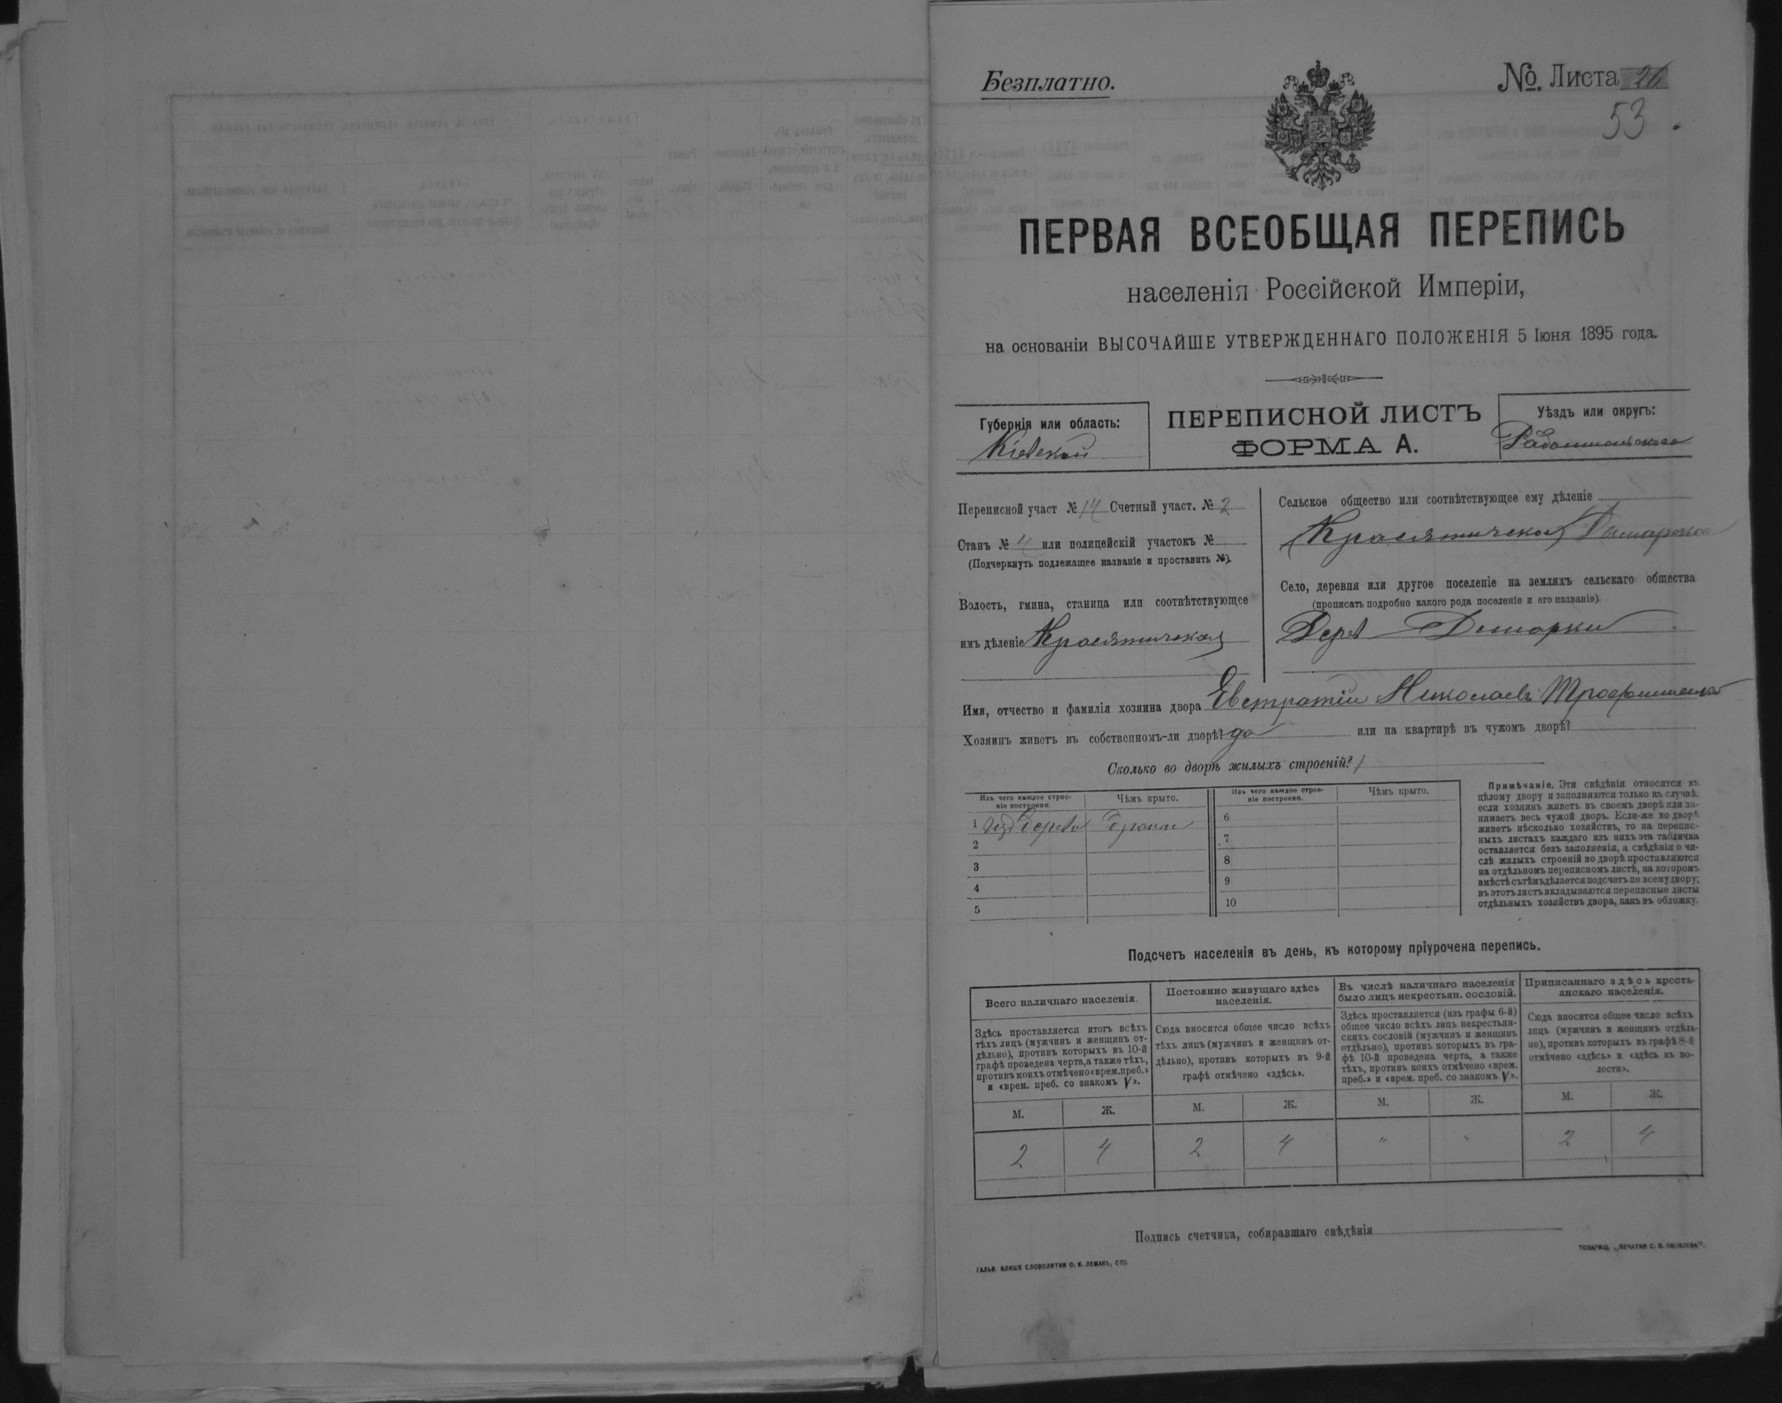 Безплатно.
№. Листа 26
53.
ПЕРВАЯ ВСЕОБЩАЯ ПЕРЕПИСЬ
населенія Россійской Имперіи,
на основаніи ВЫСОЧАЙШЕ УТВЕРЖДЕННАГО ПОЛОЖЕНІЯ 5 Іюня 1895 года.
Губернія или область:
Кіевской
ПЕРЕПИСНОЙ ЛИСТЪ
ФОРМА А.
Уѣздъ или округъ:
Радомысльскаго
Переписной участ № 14 Счетный участ. № 2
Станъ № 4 или полицейскій участокъ №
(Подчеркнуть подлежащее названіе и проставить №).
Волость, гмина, станица или соотвѣтствующее
имъ дѣленіе Красятичская
Сельское общество или соотвѣтствующее ему дѣленіе
Красятичская
Село, деревня или другое поселеніе на земляхъ сельскаго общества
(прописать подробно какого рода поселеніе и его названіе).
Дер
Имя, отчество и фамилія хозяина двора Евстратій Николаевъ
Хозяинъ живетъ въ собственномъ-ли дворѣ? да или на квартирѣ въ чужомъ дворѣ?
Сколько во дворѣ жилыхъ строеній? 1
Изъ чего каждое строеніе построено.
Чѣмъ крыто.
Изъ чего каждое строеніе построено.
Чѣмъ крыто.
1 изъ дерева
2
3
4
5
6
7
8
9
10
Примѣчаніе. Эти свѣдѣнія относятся къ
цѣлому двору и заполняются только въ случаѣ,
если хозяинъ живетъ въ своемъ дворѣ или за-
нимаетъ весь чужой дворъ. Если-же во дворѣ
живетъ нѣсколько хозяйствъ, то на перепис-
ныхъ листахъ каждаго изъ нихъ эта табличка
оставляется безъ заполненія, а свѣдѣнія о чи-
слѣ жилыхъ строеній во дворѣ проставляются
на отдѣльномъ переписномъ листѣ, на которомъ
вмѣстѣ съ тѣмъ дѣлается подсчетъ по всему двору;
въ этотъ листъ вкладываются переписные листы
отдѣльныхъ хозяйствъ двора, какъ въ обложку.
Подсчетъ населенія въ день, къ которому пріурочена перепись.
Всего наличнаго населенія.
Здѣсь проставляется итогъ всѣхъ
тѣхъ лицъ (мужчинъ и женщинъ от-
дѣльно), противъ которыхъ въ 10-й
графѣ проведена черта, а также тѣхъ,
противъ коихъ отмѣчено «врем. преб.»
и «врем. преб. со знакомъ V».
Постоянно живущаго здѣсь
населенія.
Сюда вносится общее число всѣхъ
тѣхъ лицъ (мужчинъ и женщинъ от-
дѣльно), противъ которыхъ въ 9-й
графѣ отмѣчено «здѣсь».
Въ числѣ наличнаго населенія
было лицъ некрестьян. сословій.
Здѣсь проставляется (изъ графы 6-й)
общее число всѣхъ лицъ некрестьян-
скихъ сословій (мужчинъ и женщинъ
отдѣльно), противъ которыхъ въ гра-
фѣ 10-й проведена черта, а также
тѣхъ, противъ коихъ отмѣчено «врем.
преб.» и «врем. преб. со знакомъ V».
Приписаннаго здѣсь кресть-
янскаго населенія.
Сюда вносится общее число всѣхъ
лицъ (мужчинъ и женщинъ отдѣль-
но), противъ которыхъ въ графѣ 8-й
отмѣчено «здѣсь» и «здѣсь къ во-
лости».
М. Ж. М. Ж. М. Ж. М. Ж.
2 4 2 4 " " 2 4
Подпись счетчика, собиравшаго свѣдѣнія
ГАЛЬВ. КЛИШЕ СЛОВОЛИТНИ О. И. ЛЕМАНЪ, СПБ.
ТОВАРИЩ. „ПЕЧАТНЯ С. П. ЯКОВЛЕВА".